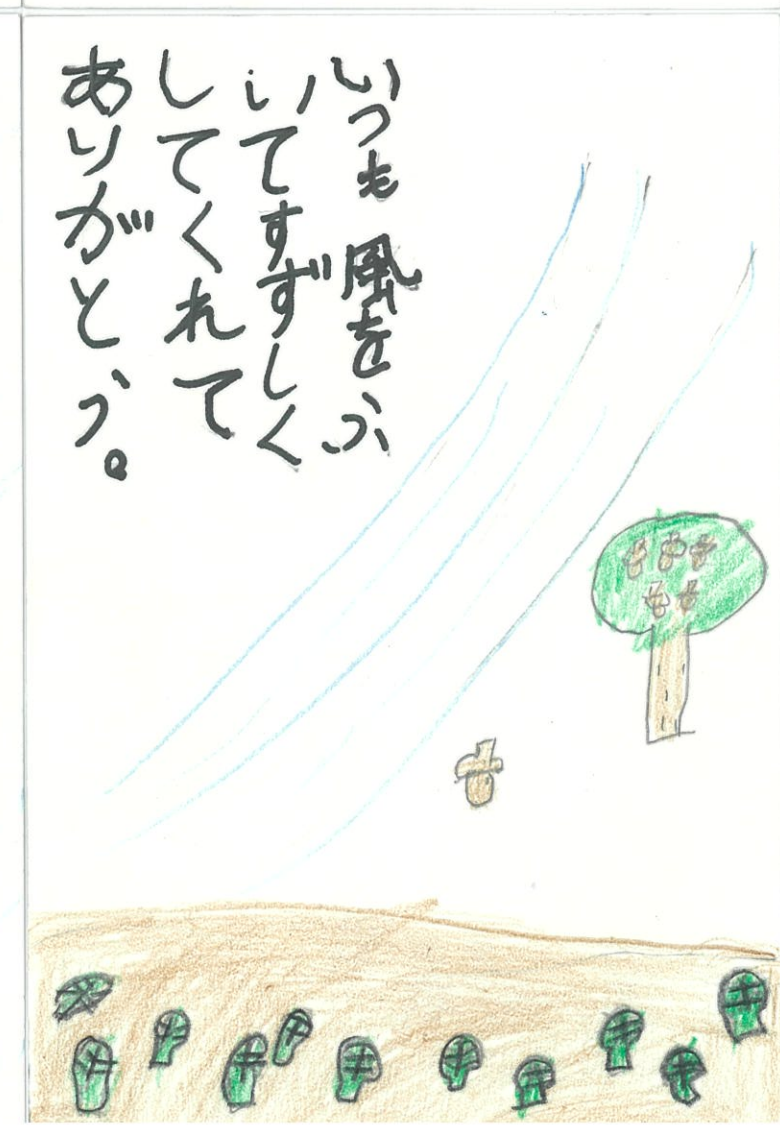 いつも風をふ
いてすずしく
してくれて
ありがとう。